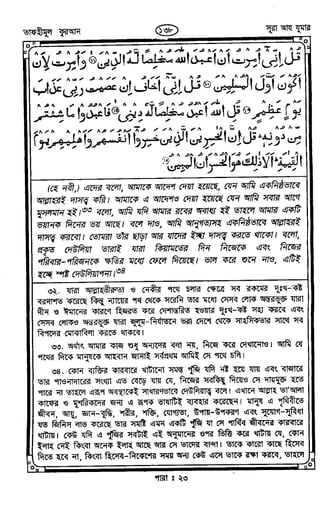 তাফহীমুল কুরআন ১৩৮ সূরা আয যুমার
قُلْ إِنِّي أُمِرْتُ أَنْ أَعْبُدَ اللَّهَ مُخْلِصًا لَّهُ الدِّينَ ۝ وَأُمِرْتُ لِأَنْ
أَكُونَ أَوَّلَ الْمُسْلِمِينَ ۝ قُلْ إِنِّي أَخَافُ إِنْ عَصَيْتُ رَبِّي عَذَابَ
يَوْمٍ عَظِيمٍ ۝ قُلِ اللَّهَ أَعْبُدُ مُخْلِصًا لَّهُ دِينِي ۝ فَاعْبُدُوا مَا شِئْتُمْ
مِّن دُونِهِ ۗ قُلْ إِنَّ الْخَاسِرِينَ الَّذِينَ خَسِرُوا أَنفُسَهُمْ وَأَهْلِيهِمْ يَوْمَ
الْقِيَامَةِ ۗ أَلَا ذَٰلِكَ هُوَ الْخُسْرَانُ الْمُبِينُ ۝
(হে নবী,) এদের বলো, আমাকে আদেশ দেয়া হয়েছে, যেন আমি একনিষ্ঠভাবে
আল্লাহরই দাসত্ব করি। আমাকে এ আদেশও দেয়া হয়েছে যেন আমি সবার আগে
মুসলমান হই।৩৩ বলো, আমি যদি আমার রবের অবাধ্য হই তাহলে আমার একটি
ভয়ানক দিনের ভয় আছে। বলে দাও, আমি আনুগত্যসহ একনিষ্ঠভাবে আল্লাহরই
দাসত্ব করবো। তোমরা তাঁর ছাড়া আর যাদের ইচ্ছা দাসত্ব করতে থাকো। বলো,
প্রকৃত দেউলিয়া তারাই যারা কিয়ামতের দিন নিজেকে এবং নিজের
পরিবার-পরিজনকে ক্ষতির মধ্যে ফেলে দিয়েছে। ভাল করে শুনে নাও, এটিই
হচ্ছে স্পষ্ট দেউলিয়াপনা।৩৪
৩২. যারা আল্লাহভীরুতা ও নেকীর পথে চলার ক্ষেত্রে সব রকমের দুঃখ-কষ্ট
বরদাশত করেছে কিন্তু ন্যায়ের পথ থেকে সরেনি তার মধ্যে সেসব লোক অন্তরভুক্ত যারা
দীন ও ঈমানের কারণে হিজরত করে দেশান্তরিত হওয়ার দুঃখ-কষ্ট সহ্য করবে এবং
সেসব লোকও অন্তরভুক্ত যারা জুলুম-নির্যাতনে ভরা দেশে থেকে সাহসিকতার সাথে সব
বিপদের মোকাবিলা করতে থাকবে।
৩৩. অর্থাৎ আমার কাজ শুধু অন্যদের বলা নয়, নিজে করে দেখানোও। আমি যে
পথের দিকে মানুষকে আহবান জানাই সর্বপ্রথম আমিই সে পথে চলি।
৩৪. কোন ব্যক্তির কারবারে খাটানো সমস্ত পুঁজি যদি নষ্ট হয়ে যায় এবং বাজারে
তার পাওনাদারের সংখ্যা এত বেড়ে যায় যে, নিজের সবকিছু দিয়েও সে দায়মুক্ত হতে
পারে না তাহলে এরূপ অবস্থাকেই সাধারণভাবে দেউলিয়াত্ব বলে। এখানে আল্লাহ তা'আলা
কাফের ও মুশরিকদের জন্য এ রূপক ভাষাটিই ব্যবহার করেছেন। মানুষ এ পৃথিবীতে
জীবন, আয়ু, জ্ঞান-বুদ্ধি, শরীর, শক্তি, যোগ্যতা, উপায়-উপকরণ এবং সুযোগ-সুবিধা
যত জিনিস লাভ করেছে তার সমষ্টি এমন একটি পুঁজি যা সে পার্থিব জীবনের কারবারে
খাটায়। কেউ যদি এ পুঁজির সবটাই এই অনুমানের ওপর ভিত্তি করে খাটায় যে, কোন
ইলাহ নেই কিংবা অনেক ইলাহ আছে আর সে তাদের বান্দা। তাকে কারো কাছে হিসেব
দিতে হবে না, কিংবা হিসেব-নিকেশের সময় অন্য কেউ এসে তাকে রক্ষা করবে, তাহলে
পারা : ২৩